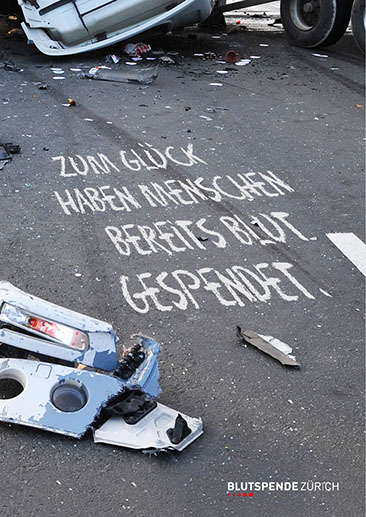 ZUM GLÜCK
HABEN MENSCHEN
BEREITS BLUT
GESPENDET.
BLUTSPENDE ZÜRICH